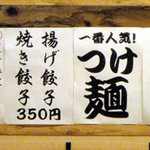 一番人気!
つけ
麺
揚げ餃子
焼き餃子
350円